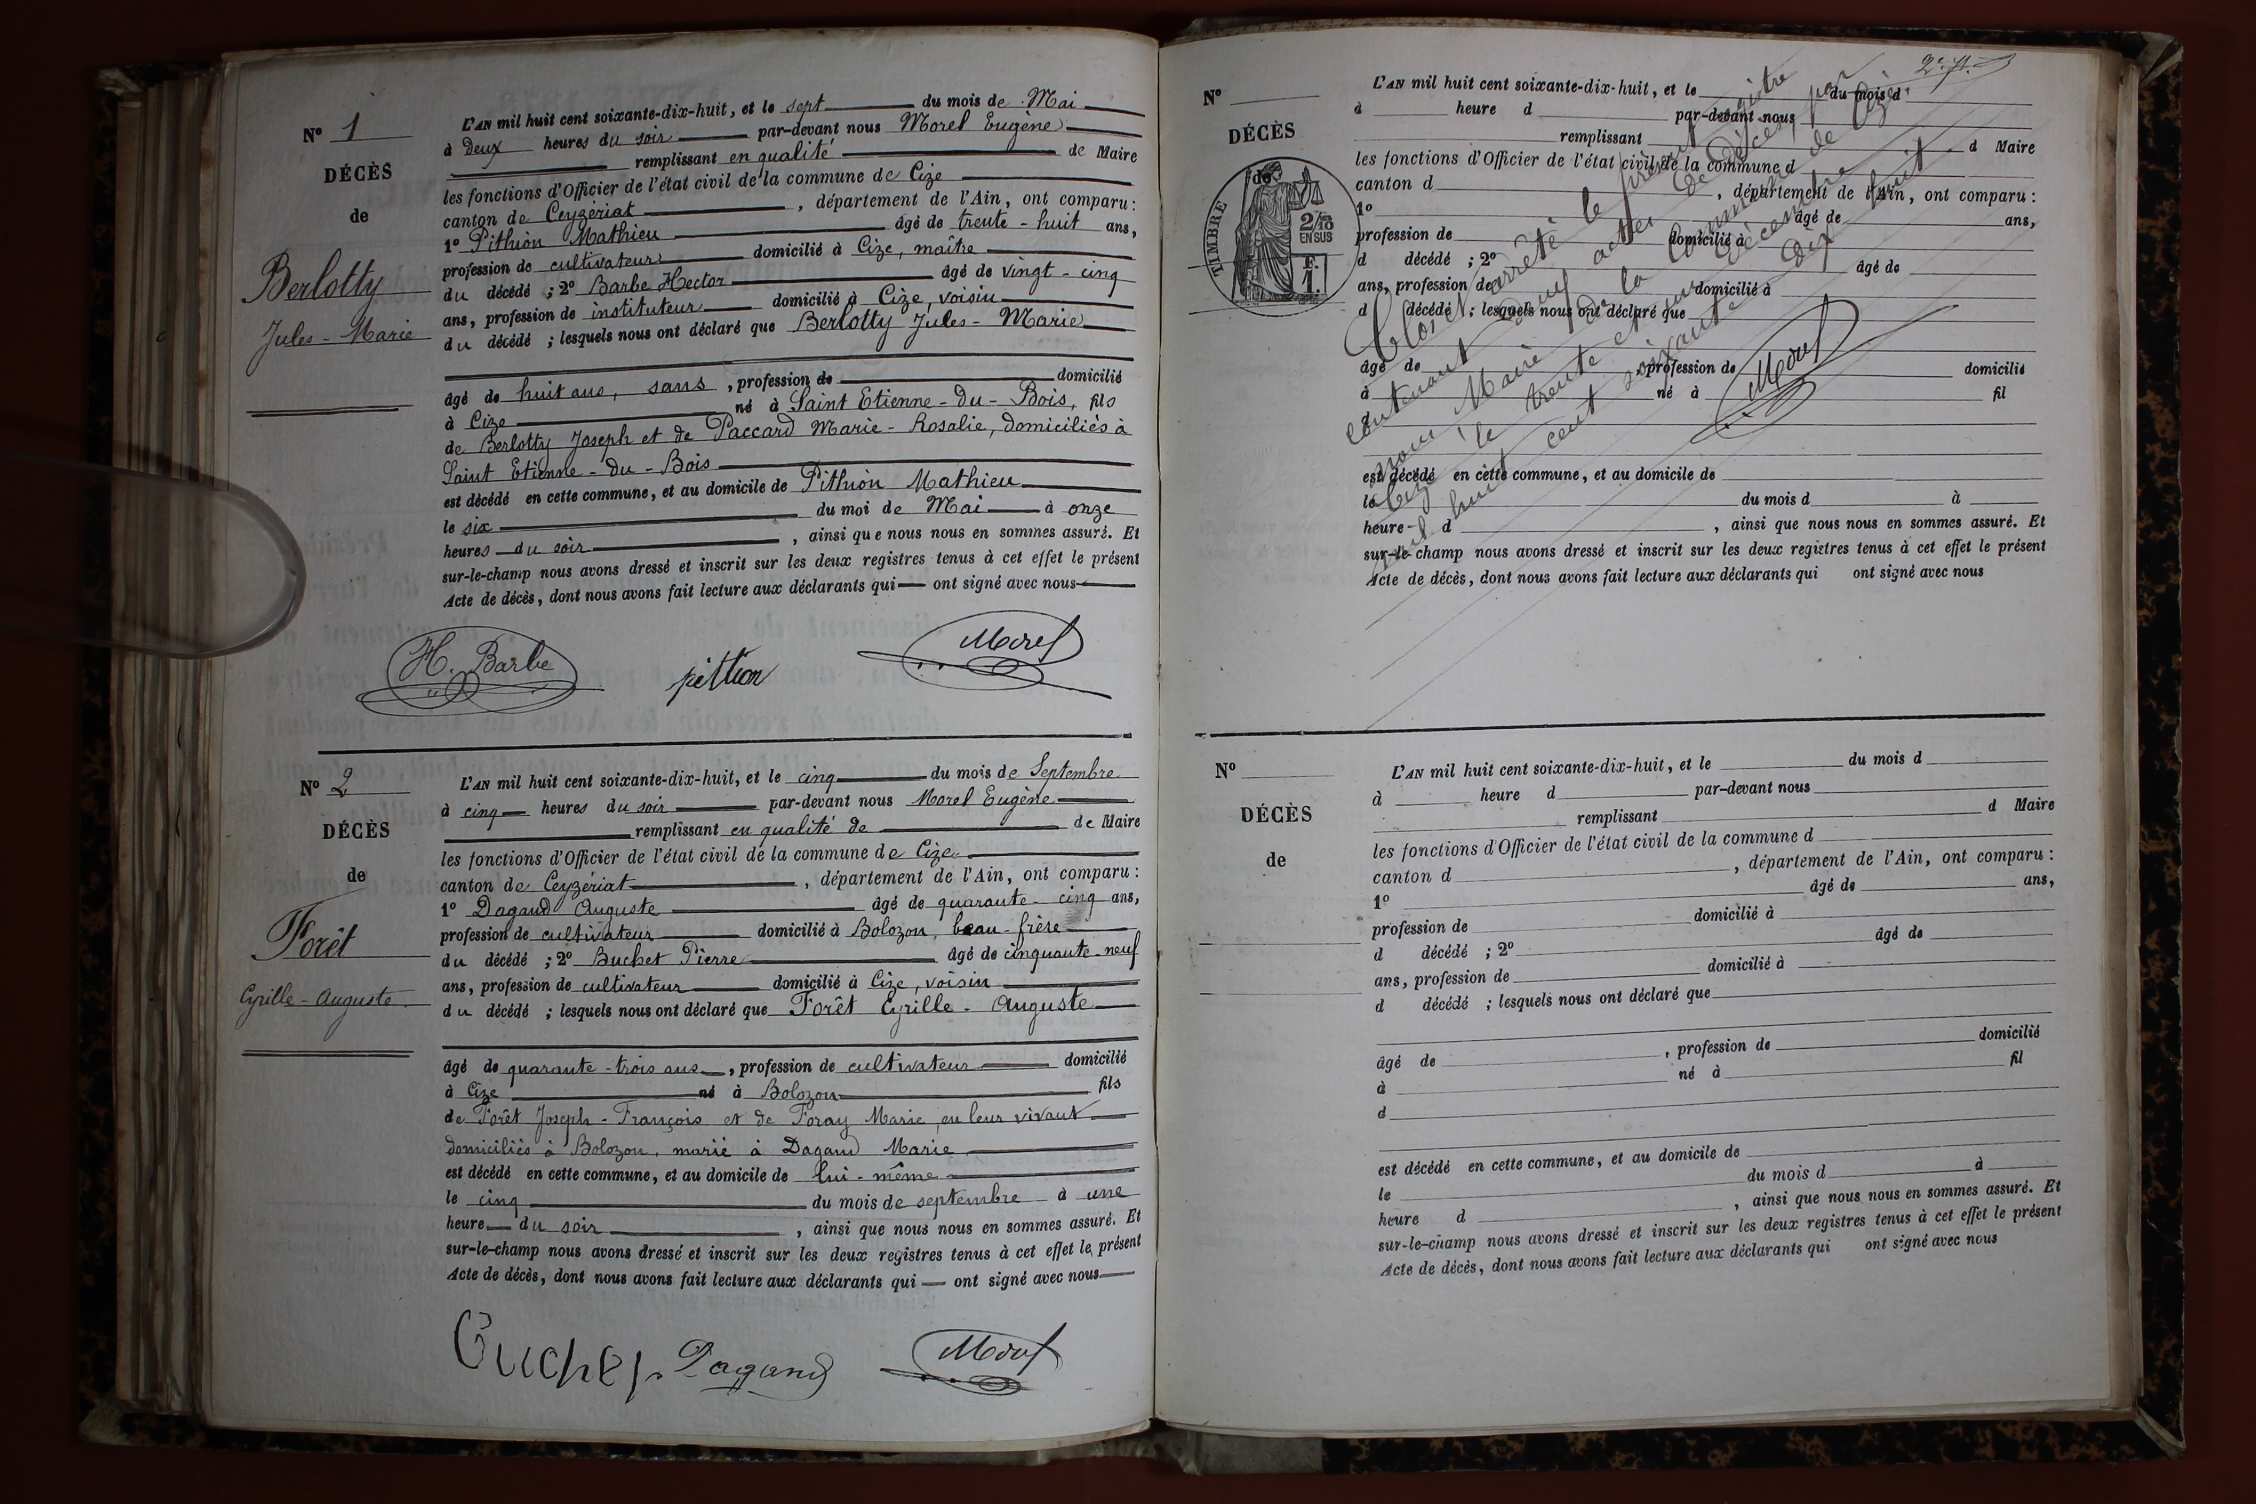 N° 1
DÉCÈS
de
Berlotty
Jules - Marie
L'AN mil huit cent soixante-dix-huit, et le sept du mois de Mai
à deux heures du soir par-devant nous Morel Eugène
remplissant en qualité de Maire
les fonctions d'Officier de l'état civil de la commune de Cize
canton de Ceyzériat, département de l'Ain, ont comparu :
1° Pithion Mathieu âgé de trente - huit ans,
profession de cultivateur domicilié à Cize, maître
du décédé ; 2° Barbe Hector âgé de vingt - cinq
ans, profession de instituteur domicilié à Cize, voisin
du décédé ; lesquels nous ont déclaré que Berlotty Jules - Marie
âgé de huit ans, sans, profession de domicilié
à Cize né à Saint Etienne - du - Bois, fils
de Berlotty Joseph et de Paccard Marie - Rosalie, domiciliés à
Saint Etienne - du - Bois
est décédé en cette commune, et au domicile de Pithion Mathieu
le six du moi de Mai à onze
heures du soir, ainsi que nous nous en sommes assuré. Et
sur-le-champ nous avons dressé et inscrit sur les deux registres tenus à cet effet le présent
Acte de décès, dont nous avons fait lecture aux déclarants qui ont signé avec nous
H. Barbe pittion Morel
N° 2
DÉCÈS
de
Forêt
Cyrille - Auguste.
L'AN mil huit cent soixante-dix-huit, et le cinq du mois de Septembre
à cinq heures du soir par-devant nous Morel Eugène
remplissant en qualité de de Maire
les fonctions d'Officier de l'état civil de la commune de Cize
canton de Ceyzériat, département de l'Ain, ont comparu :
1° Dagand Auguste âgé de quarante - cinq ans,
profession de cultivateur domicilié à Bolozon, beau - frère
du décédé ; 2° Buchet Pierre âgé de cinquante - neuf
ans, profession de cultivateur domicilié à Cize, voisin
du décédé ; lesquels nous ont déclaré que Forêt Cyrille - Auguste
âgé de quarante - trois ans, profession de cultivateur domicilié
à Cize né à Bolozon fils
de Forêt Joseph - François et de Foray Marie, en leur vivant
domiciliés à Bolozon, marié à Dagand Marie
est décédé en cette commune, et au domicile de lui - même
le cinq du mois de septembre à une
heure du soir, ainsi que nous nous en sommes assuré. Et
sur-le-champ nous avons dressé et inscrit sur les deux registres tenus à cet effet le présent
Acte de décès, dont nous avons fait lecture aux déclarants qui ont signé avec nous
Buchet Dagand Morel
N°
DÉCÈS
de
TIMBRE
2/10
EN SUS
F.
1.
L'AN mil huit cent soixante-dix-huit, et le du mois d
à heure d par-devant nous
remplissant d Maire
les fonctions d'Officier de l'état civil de la commune d
canton d, département de l'Ain, ont comparu :
1° âgé de ans,
profession de domicilié à
d décédé ; 2° âgé de
ans, profession de domicilié à
d décédé ; lesquels nous ont déclaré que
âgé de, profession de domicilié
à né à fil
d
est décédé en cette commune, et au domicile de
le du mois d à
heure d, ainsi que nous nous en sommes assuré. Et
sur-le-champ nous avons dressé et inscrit sur les deux registres tenus à cet effet le présent
Acte de décès, dont nous avons fait lecture aux déclarants qui ont signé avec nous
Clos et arrêté le présent registre
contenant deux actes de décès, par
nous Maire de la commune de Cize
à Cize, le trente et un décembre
mil huit cent soixante dix huit
Morel
N°
DÉCÈS
de
L'AN mil huit cent soixante-dix-huit, et le du mois d
à heure d par-devant nous
remplissant d Maire
les fonctions d'Officier de l'état civil de la commune d
canton d, département de l'Ain, ont comparu :
1° âgé de ans,
profession de domicilié à
d décédé ; 2° âgé de
ans, profession de domicilié à
d décédé ; lesquels nous ont déclaré que
âgé de, profession de domicilié
à né à fil
d
est décédé en cette commune, et au domicile de
le du mois d à
heure d, ainsi que nous nous en sommes assuré. Et
sur-le-champ nous avons dressé et inscrit sur les deux registres tenus à cet effet le présent
Acte de décès, dont nous avons fait lecture aux déclarants qui ont signé avec nous